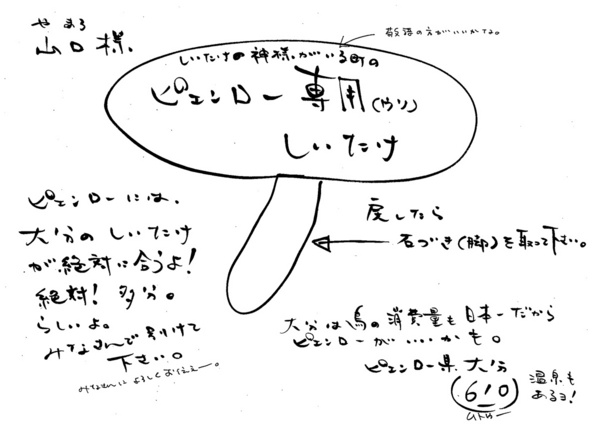 やまろ
山口様、
敬語の方がいいかな。
しいたけの神様がいる町の
ピェンロー専用(ウソ)
しいたけ
ピェンローには、
大分のしいたけ
が絶対に合うよ!
絶対! 多分。
らしいよ。
みなさんで分けて
下さい。
みなさんによろしくお伝えー。
戻したら
石づき(脚)を取って下さい。
大分は鳥の消費量も日本一だから
ピェンローがいいかも。
ピェンロー県 大分
610
温泉も
あるヨ!